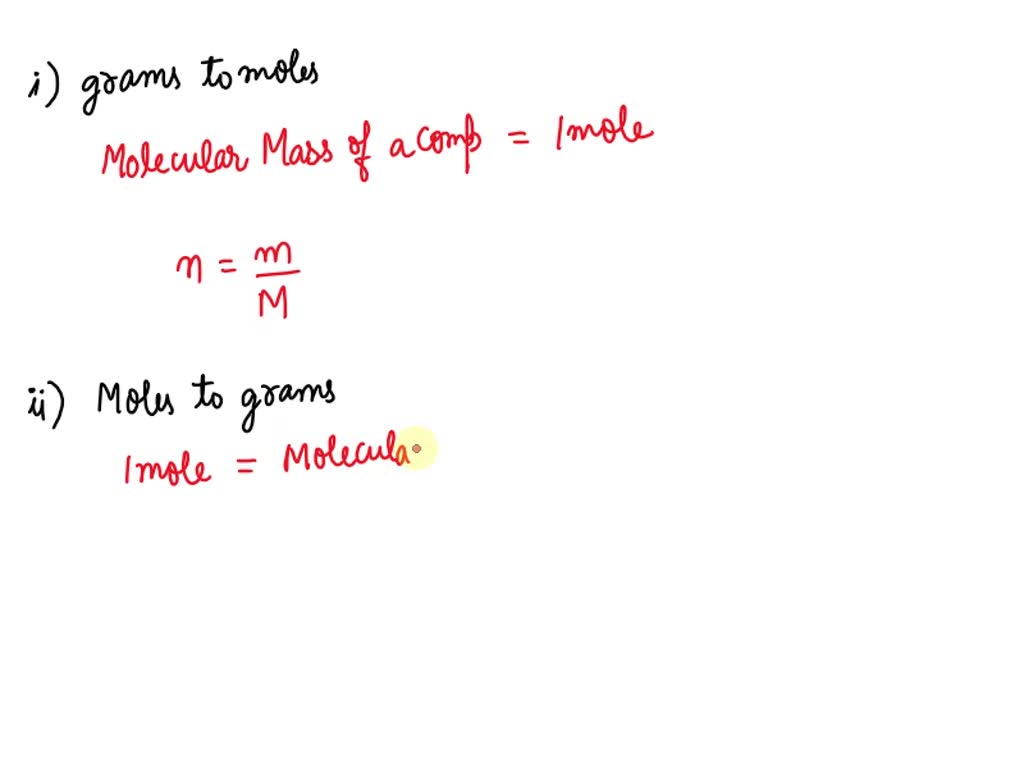 i) grams to moles
Molecular Mass of a comp = 1 mole
n = m/M
ii) Moles to grams
1 mole = Molecula